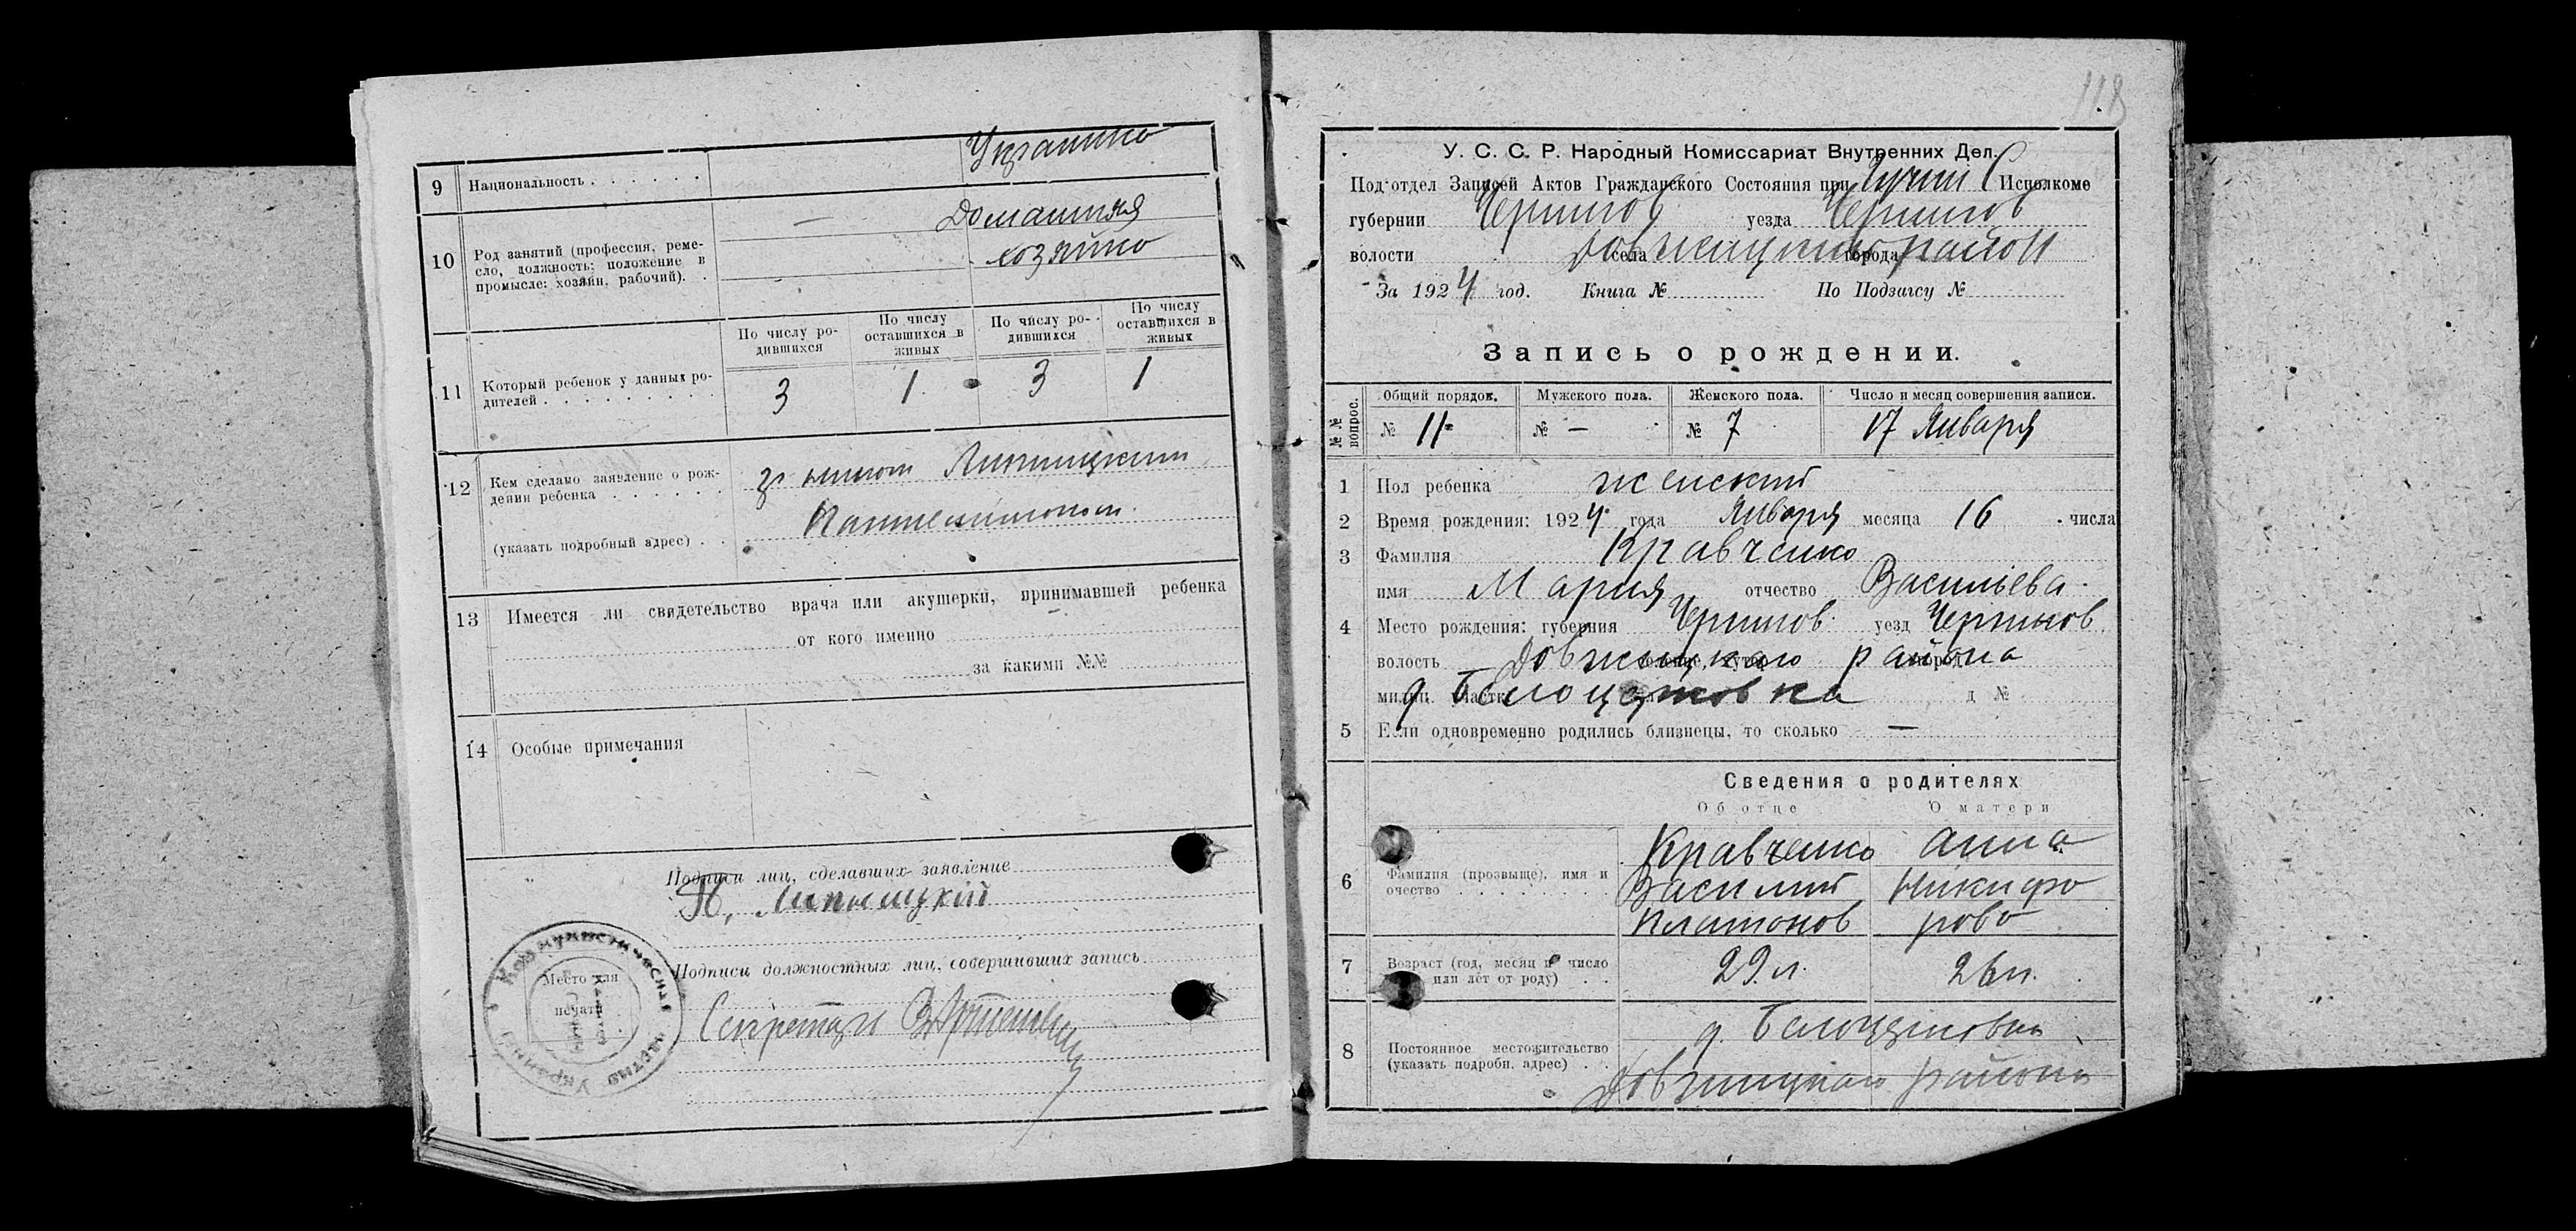 9 Национальность . . . . . . Украинка
10 Род занятий (профессия, реме-
сло, должность: положение в
промысле: хозяин, рабочий). .
— Домашняя
хозяйка
По числу ро-
дившихся
По числу
оставшихся в
живых
По числу ро-
дившихся
По числу
оставшихся в
живых
11 Который ребенок у данных ро-
дителей . . . . . . . . .
3 1 3 1
12 Кем сделано заявление о рож-
дении ребенка . . . . . .
Липницким
(указать подробный адрес) . .
13 Имеется ли свидетельство врача или акушерки, принимавшей ребенка
от кого именно
за какими №№
14 Особые примечания
Подписи лиц, сделавших заявление
Подписи должностных лиц, совершивших запись
Секретарь
Коммунистическая партия Украины
Место для
печати
118
У. С. С. Р. Народный Комиссариат Внутренних Дел.
Под'отдел Записей Актов Гражданского Состояния при Исполкоме
губернии Чернигов уезда Чернигов
волости села города район
За 1924 год. Книга № По Подзагсу №
Запись о рождении.
№№ вопрос.
Общий порядок. Мужского пола. Женского пола. Число и месяц совершения записи.
№ 11 № — № 7 17 Января
1 Пол ребенка женский
2 Время рождения: 1924 года Января месяца 16 числа
3 Фамилия Кравченко
имя Мария отчество Васильева
4 Место рождения: губерния Чернигов уезд Чернигов
волость Довжицкаго района
д №
5 Если одновременно родились близнецы, то сколько —
Сведения о родителях
Об отце О матери
6 Фамилия (прозвыще), имя и
очество . . . . . . . .
Кравченко Анна
Василий Никифо
Платонов рова
7 Возраст (год, месяц и число
или лет от роду) . .
29 л. 26 л.
8 Постоянное местожительство
(указать подробн. адрес) . .
Довжицкаго района